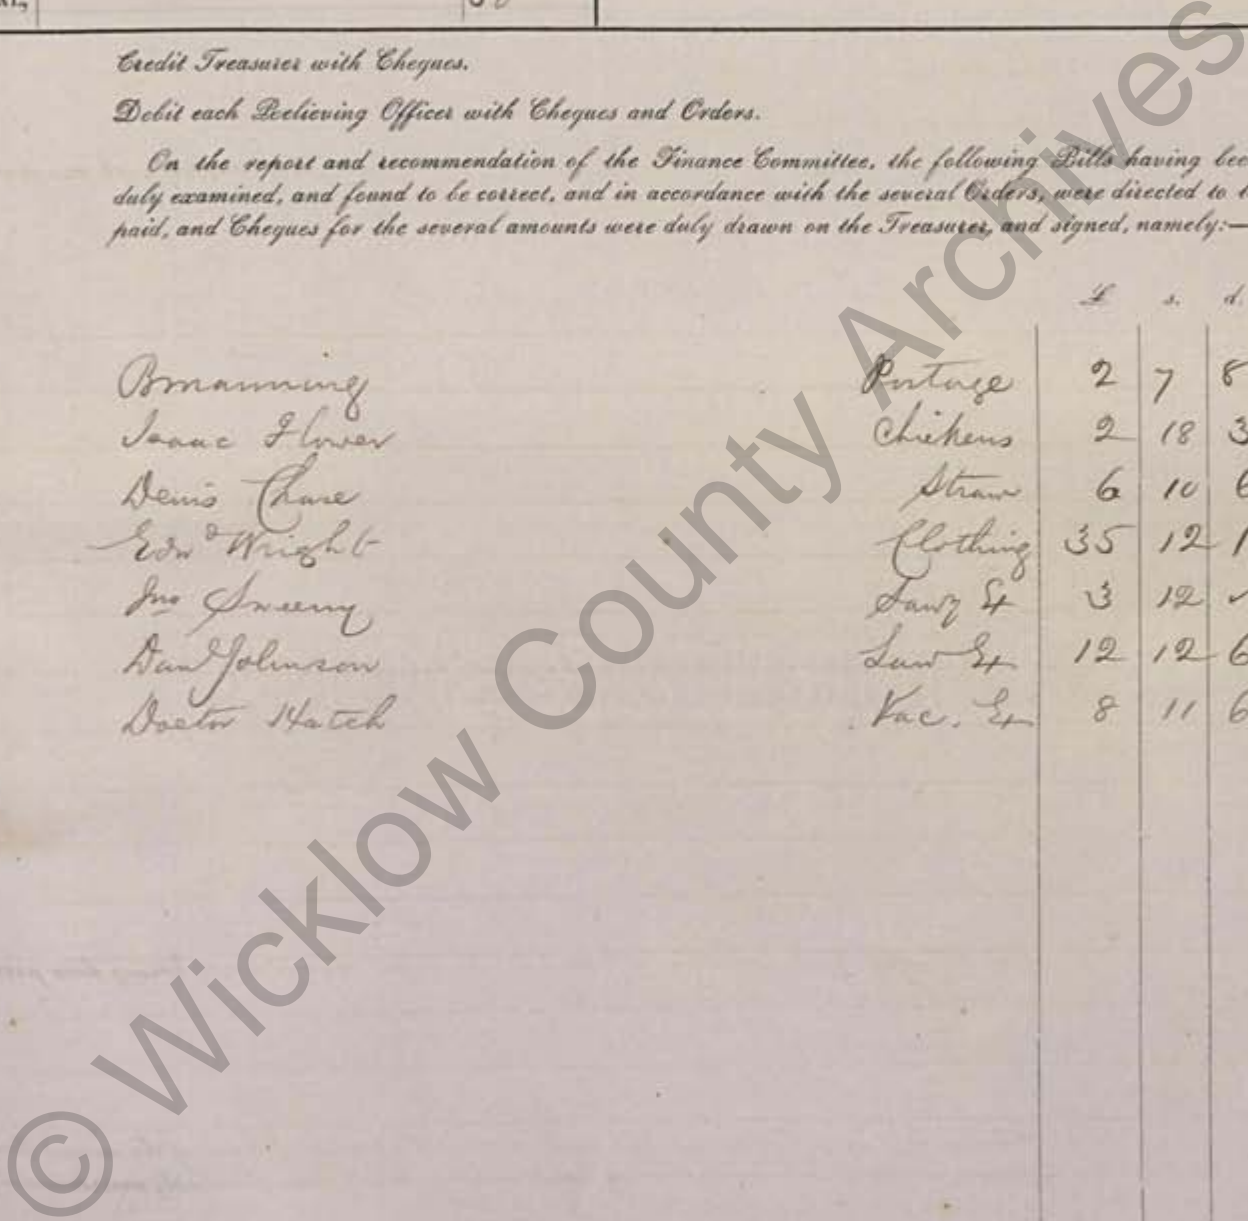 Credit Treasurer with Cheques.
Debit each Relieving Officer with Cheques and Orders.
On the report and recommendation of the Finance Committee, the following Bills having bee
duly examined, and found to be correct, and in accordance with the several Orders, were directed to b
paid, and Cheques for the several amounts were duly drawn on the Treasurer, and signed, namely:—
£ s. d.
B Manning Postage 2 7 8
Isaac Flower Chickens 2 18 3
Denis Chase Straw 6 10 6
Edwd Wright Clothing 35 12 1
Jno Sweeny 3 12
Danl Johnson Law Ex 12 12 6
Doctor Hatch Vac. Ex 8 11 6
© Wicklow County Archives